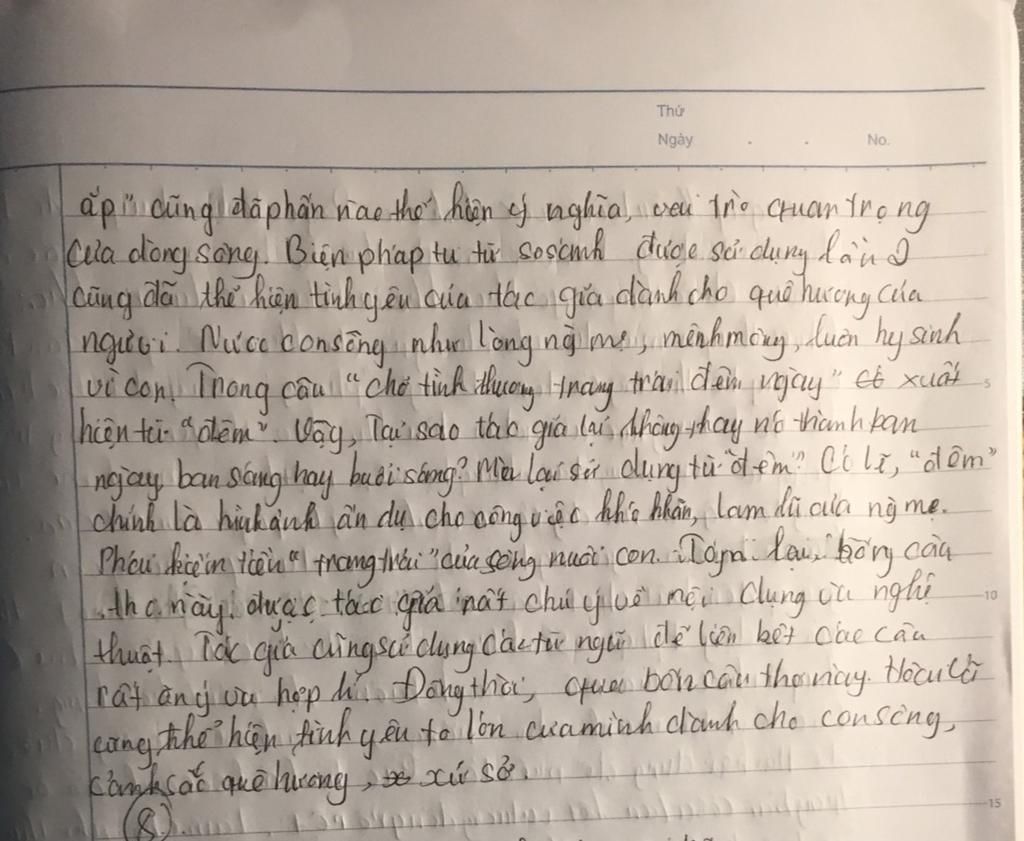 Thứ
Ngày . . No.
ắp" cũng đã phần nào thể hiện ý nghĩa, vai trò quan trọng
của dòng sông. Biện pháp tu từ so sánh được sử dụng lần 2
cũng đã thể hiện tình yêu của tác giả dành cho quê hương của
người. Nước con sông như lòng ng mẹ, mênh mông, luôn hy sinh
vì con. Trong câu "chở tình thương trang trải đêm ngày" có xuất
5
hiện từ "đêm". Vậy, Tại sao tác giả lại không thay nó thành ban
ngày, ban sáng hay buổi sáng? Mà lại sử dụng từ "đêm"? Có lẽ, "đêm"
chính là hình ảnh ẩn dụ cho công việc khó khăn, lam lũ của ng mẹ.
tiền "trang trải" cuộc sống nuôi con. Tóm lại, bốn câu
thơ này, được tác giả rất chú ý về nội dung và nghệ
10
thuật. Tác giả cũng sử dụng các từ ngữ để liên kết các câu
rất ăn ý và hợp lí. Đồng thời, qua bốn câu thơ này. Hoài Vũ
cũng thể hiện tình yêu to lớn của mình dành cho con sông,
cảnh sắc quê hương, xứ sở.
15
(8)